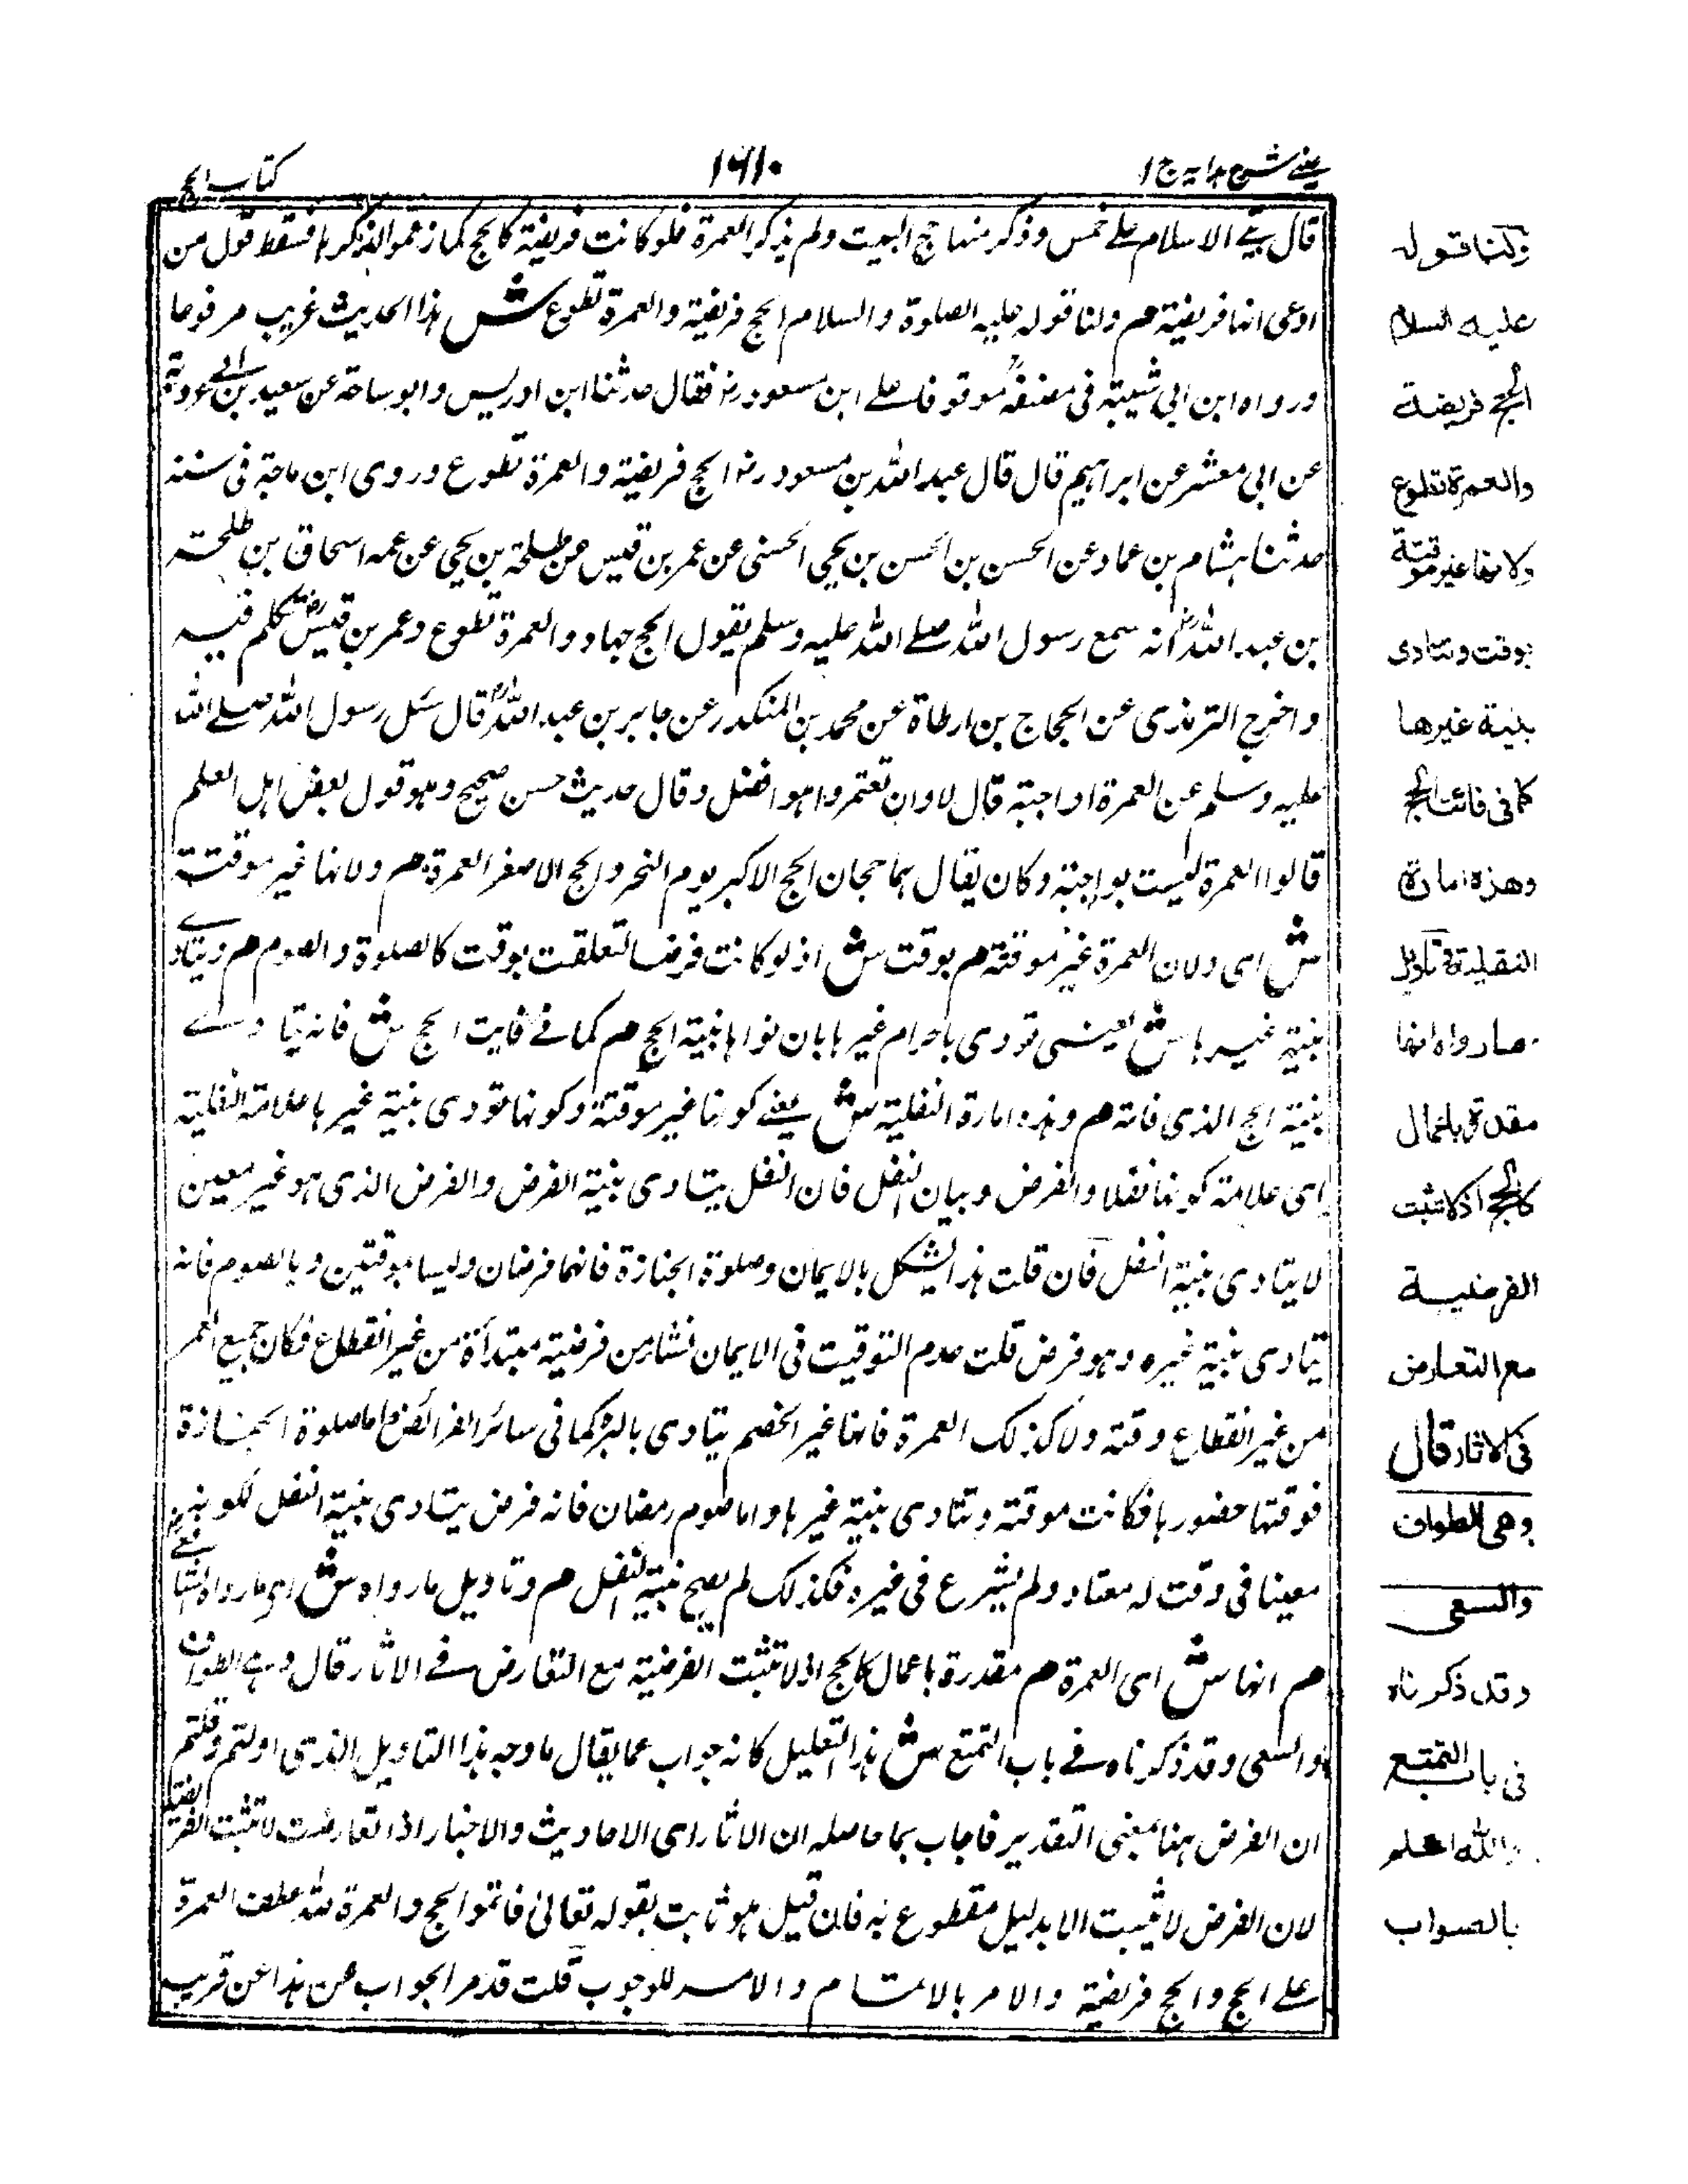 عينى شرح هدايه ج ١
١٦١٠
كتاب الحج
قال بنى الاسلام على خمس وذكر منها حج البيت ولم يذكر العمرة فلو كانت فريضة كالحج كما زعموا لذكرها فسقط قول من
ادعى انها فريضة هم ولنا قوله عليه الصلوة والسلام الحج فريضة والعمرة تطوع ش هذا الحديث غريب مرفوعا
ورواه ابن ابى شيبة فى مصنفه موقوفا على ابن مسعود رض فقال حدثنا ابن ادريس وابو ساحة عن سعيد بن ابى عروبة
عن ابى معشر عن ابراهيم قال قال عبد الله بن مسعود رض الحج فريضة والعمرة تطوع وروى ابن ماجة فى سننه
حدثنا هشام بن عماد عن الحسن بن الحسن بن يحيى الحسنى عن عمر بن قيس عن طلحة بن يحيى عن عمه اسحاق بن طلحة
بن عبد الله رض انه سمع رسول الله صلى الله عليه وسلم يقول الحج جهاد والعمرة تطوع وعمر بن قيس تكلم فيه
واخرج الترمذى عن الحجاج بن ارطاة عن محمد بن المنكدر عن جابر بن عبد الله رض قال سئل رسول الله صلى الله
عليه وسلم عن العمرة اواجبة قال لا وان تعتمروا هو افضل وقال حديث حسن صحيح وهو قول بعض اهل العلم
قالوا العمرة ليست بواجبة وكان يقال هما حجان الحج الاكبر يوم النحر والحج الاصغر العمرة هم ولانها غير موقتة
ش اى ولان العمرة غير موقتة هم بوقت ش اذ لو كانت فرضا لتعلقت بوقت كالصلوة والصوم هم ويتادى
بنية غيرها ش يعنى تودى باحرام غيرها بان نواها بنية الحج هم كما فى فايت الحج ش فانه يتادى
بنية الحج الذى فاته هم وهذه امارة النفلية ش يعنى كونها غير موقتة وكونها تودى بنية غيرها علامة النفلية
اى علامة كونها نفلا والفرض وبيان النفل فان النفل يتادى بنية الفرض والفرض الذى هو غير معين
لا يتادى بنية النفل فان قلت هذا يشكل بالايمان وصلوة الجنازة فانهما فرضان وليسا بموقتين وبالصوم فانه
يتادى بنية غيره وهو فرض قلت عدم التوقيت فى الايمان نشا من فرضيته مبتدأة من غير انقطاع فكان جميع العمر
من غير انقطاع وقته ولا كذلك العمرة فانها غير الخصم يتادى بالبر كما فى سائر الفرائض اما صلوة الجنازة
فوقتها حضورها فكانت موقتة وتتادى بنية غيرها واما صوم رمضان فانه فرض يتادى بنية النفل لكونه
معينا فى وقت له معتاد ولم يشرع فى غيره فكذلك لم يصح نية النفل هم وتاويل ما رواه ش اى ما رواه الشافعى
هم انها ش اى العمرة هم مقدرة باعمال كالحج اذ لا تثبت الفرضية مع التعارض فى الاثار قال وهى الطواف
والسعى وقد ذكرناه فى باب التمتع ش هذا التعليل كانه جواب عما يقال ما وجه هذا التاويل الذى اولتم وقلتم
ان الفرض هنا بمعنى التقدير فاجاب بما حاصله ان الاثار اى الاحاديث والاخبار اذا تعارضت لا تثبت الفريضة
لان الفرض لا يثبت الا بدليل مقطوع به فان قيل هو ثابت بقوله تعالى فاتموا الحج والعمرة لله عطف العمرة
على الحج والحج فريضة والامر بالاتمام والامر للوجوب قلت قد مر الجواب عن هذا عن قريب
ولنا قوله
عليه السلام
الحج فريضة
والعمرة تطوع
ولانها غير موقتة
بوقت وتتادى
بنية غيرها
كما فى فائت الحج
وهذه امارة
النفلية وتاويل
ما رواه انها
مقدرة باعمال
كالحج اذ لا تثبت
الفرضية
مع التعارض
فى الاثار قال
وهى الطواف
والسعى
وقد ذكرناه
فى باب التمتع
والله اعلم
بالصواب